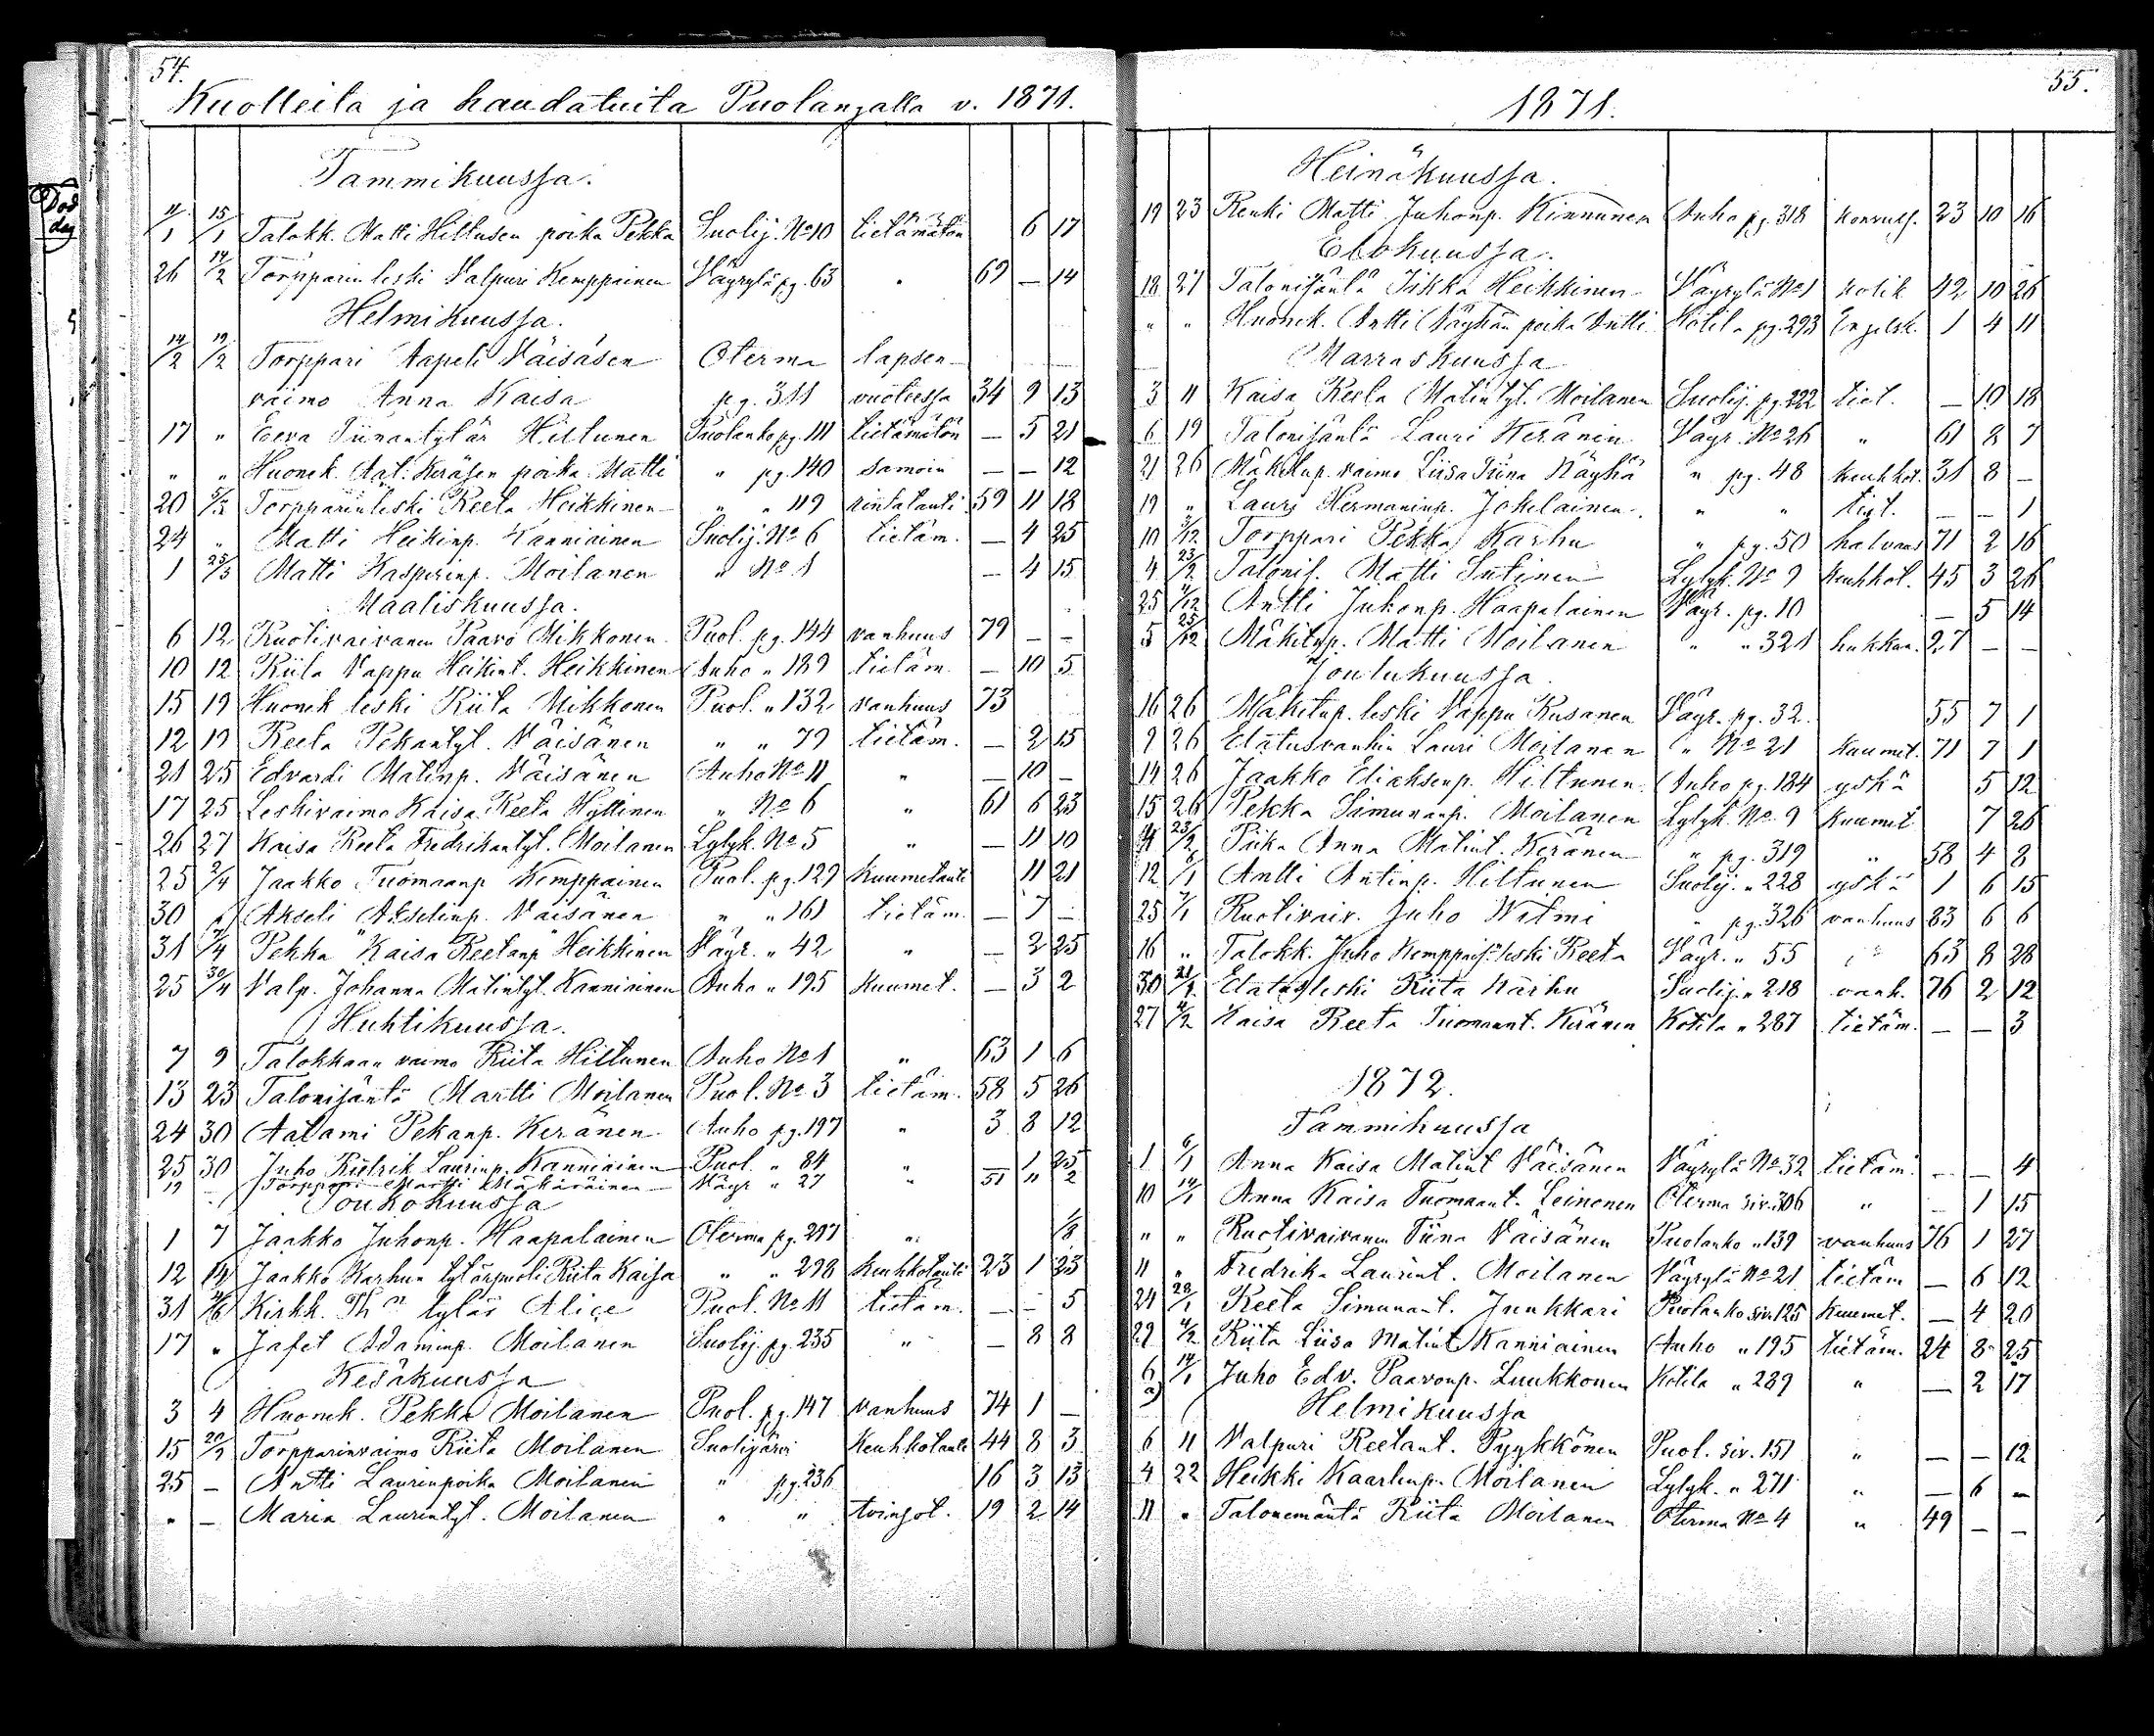 54.
Kuolleita ja haudatuita Puolangalla v. 1871.
Tammikuussa.
11/1 15/1 Talokk. Matti Hiltusen poika Pekka Suolij. No 10 tietämätön 6 17
26 14/2 Torpparin leski Valpuri Kemppainen Väyrylä pg. 63 " 69 — 14
Helmikuussa.
14/2 19/2 Torppari Aapeli Väisäsen Oterma lapsen-
vaimo Anna Kaisa pg. 311 vuoteessa 34 9 13
17 " Eeva Tiinantytär Hiltunen Puolanko pg. 111 tietämätön — 5 21
" " Huonek. Aat. Keräsen poika Matti " pg. 140 samoin — — 12
20 5/3 Torpparin leski Reeta Heikkinen " " 119 rintatauti 59 11 18
24 " Matti Heikinp. Kanniainen Suolij. No 6 tietäm. — 4 25
1 25/3 Matti Kasperinp. Moilanen " No 1 — 4 15
Maaliskuussa.
6 12 Ruotivaivanen Paavo Mikkonen Puol. pg. 144 vanhuus 79 — —
10 12 Riita Vappu Heikint. Heikkinen Auho " 189 tietäm. — 10 5
15 19 Huonek leski Riita Mikkonen Puol. " 132 vanhuus 73
12 19 Reeta Pekantyt. Väisänen " " 79 tietäm. — 2 15
21 25 Edvardi Matinp. Väisänen Auho No 11 " — 10 —
17 25 Leskivaimo Kaisa Reeta Hyttinen " No 6 " 61 6 23
26 27 Kaisa Reeta Fredrikantyt. Moilanen Lylyk. No 5 " — 11 10
25 2/4 Jaakko Tuomaanp Kemppainen Puol. pg. 129 Kuumetauti 11 21
30 " Akseli Akselinp. Väisänen " " 161 tietäm. — 7 —
31 7/4 Pekka "Kaisa Reetanp" Heikkinen Väyr. " 42 " — 2 25
25 30/4 Valp. Johanna Matintyt. Kanniainen Auho " 195 Kuumet. — 3 2
Huhtikuussa.
7 9 Talokkaan vaimo Riita Hiltunen Auho No 1 " 63 1 6
13 23 Talonisäntä Martti Moilanen Puol. No 3 tietäm. 58 5 26
24 30 Aatami Pekanp. Keränen Auho pg. 197 " 3 8 12
25 30 Juho Riidrik Laurinp. Kanniainen Puol. " 84 " — 1 25
19 — Torppari Martti Mäkäräinen Väyr " 27 " 51 " 2
Toukokuussa
1 7 Jaakko Juhonp. Haapalainen Oterma pg. 297 " 1/8
12 14 Jaakko Karhun tytärpuoli Riita Kaisa " " 298 keuhkotauti 23 1 23
31 4/6 Kirkh. Th n tytär Alice Puol. No 11 tietäm. — — 5
17 " Jafet Adaminp. Moilanen Suolij. pg. 235 " — 8 8
Kesäkuussa
3 4 Huonek. Pekka Moilanen Puol. pg. 147 vanhuus 74 1 —
15 20/7 Torpparinvaimo Riita Moilanen Suolijärvi Keuhkotauti 44 8 3
25 — Antti Laurinpoika Moilanen " pg. 236 16 3 13
" — Maria Laurintyt. Moilanen " " 19 2 14
55.
1871.
Heinäkuussa.
19 23 Renki Matti Juhonp. Kinnunen Auho pg. 318 23 10 16
Elokuussa.
18 27 Talonisäntä Iikka Heikkinen Väyrylä No 1 kolik 42 10 26
" " Huonek. Antti Näyhän poika Antti Kotila pg. 293 Engelsk. 1 4 11
Marraskuussa
3 11 Kaisa Reeta Matintyt. Moilanen Suolij. pg. 222 tiet. — 10 18
6 19 Talonisäntä Lauri Keränen Väyr. No 26 " 61 8 7
21 26 Mäkitup. vaimo Liisa Tiina Näyhä " pg. 48 keuhkot. 31 8 —
19 " Lauri Hermaninp. Jokelainen " " tiet. — — 1
10 3/12 Torppari Pekka Karhu " pg. 50 halvaus 71 2 16
4 23/12 Talonis. Matti Sutinen Lylyk. No 9 keuhkot. 45 3 26
25 1/12 Antti Juhonp. Haapalainen Väyr. pg. 10 — 5 14
5 25/12 Mäkitup. Matti Moilanen " " 321 hukkun. 27 — —
Joulukuussa.
16 26 Mäkitup. leski Vappu Kusanen Väyr. pg. 32. 55 7 1
9 26 Elätusvanhin Lauri Moilanen " No 21 Kuumet. 71 7 1
14 26 Jaakko Eliaksenp. Hiltunen Auho pg. 184 yskä 5 12
15 26 Pekka Simunanp. Moilanen Lylyk. No 9 Kuumet 7 26
Piika Anna Matint. Keränen " pg. 319 " 58 4 8
12 6/1 Antti Antinp. Hiltunen Suolij. " 228 yskä 1 6 15
25 7/1 Ruotivaiv. Juho Wilmi " pg. 326 vanhuus 83 6 6
16 " Talokk. Juho Kemppais. leski Reeta Väyr. " 55 " 63 8 28
30 21/1 Elätusleski Riita Karhu Suolij. " 218 vanh. 76 2 12
27 4/2 Kaisa Reeta Tuomaant. Keränen Kotila " 287 tietäm. — — 3
1872.
Tammikuussa
1 6/1 Anna Kaisa Matint Väisänen Väyrylä No 32 tietäm. — — 4
10 14/1 Anna Kaisa Tuomaant. Leinonen Oterma siv. 306 " — 1 15
" " Ruotivaivanen Tiina Väisänen Puolanko " 139 vanhuus 76 1 27
11 " Fredrika Laurint. Moilanen Väyrylä No 21 tietäm — 6 12
24 28/1 Reeta Simunant. Junkkari Puolanko siv. 125 Kuumet. — 4 20
29 4/2 Riita Liisa Matint Kanniainen Auho " 195 tietäm. 24 8 25
6 14/1 Juho Edv. Paavonp. Luukkonen Kotila " 289 " — 2 17
Helmikuussa
6 11 Valpuri Reetant. Pyykkönen Puol. siv. 151 " — — 12
4 22 Heikki Kaarlenp. Moilanen Lylyk. " 271 " — 6 —
11 " Talonemäntä Riita Moilanen Oterma No 4 " 49 — —